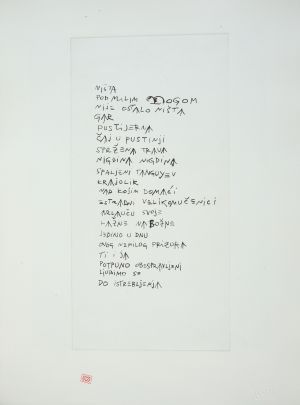 NIŠTA
POD MILIM BOGOM
NIJE OSTALO NIŠTA
GAR
PUSTIJERNA
ČAJ U PUSTINJI
SPRŽENA TRAVA
NIGDINA NIGDINA
SPALJENI TANGUYEV
KRAJOLIK
NAD KOJIM DOMAĆI
ESTRADNI VELIKOMUČENICI
ARLAUČU SVOJE
LAŽNE NABOŽNE
JEDINO U DNU
OVOG NEMILOG PRIZORA
TI I JA
POTPUNO OBESPRAVLJENI
LJUBIMO SE
DO ISTREBLJENJA